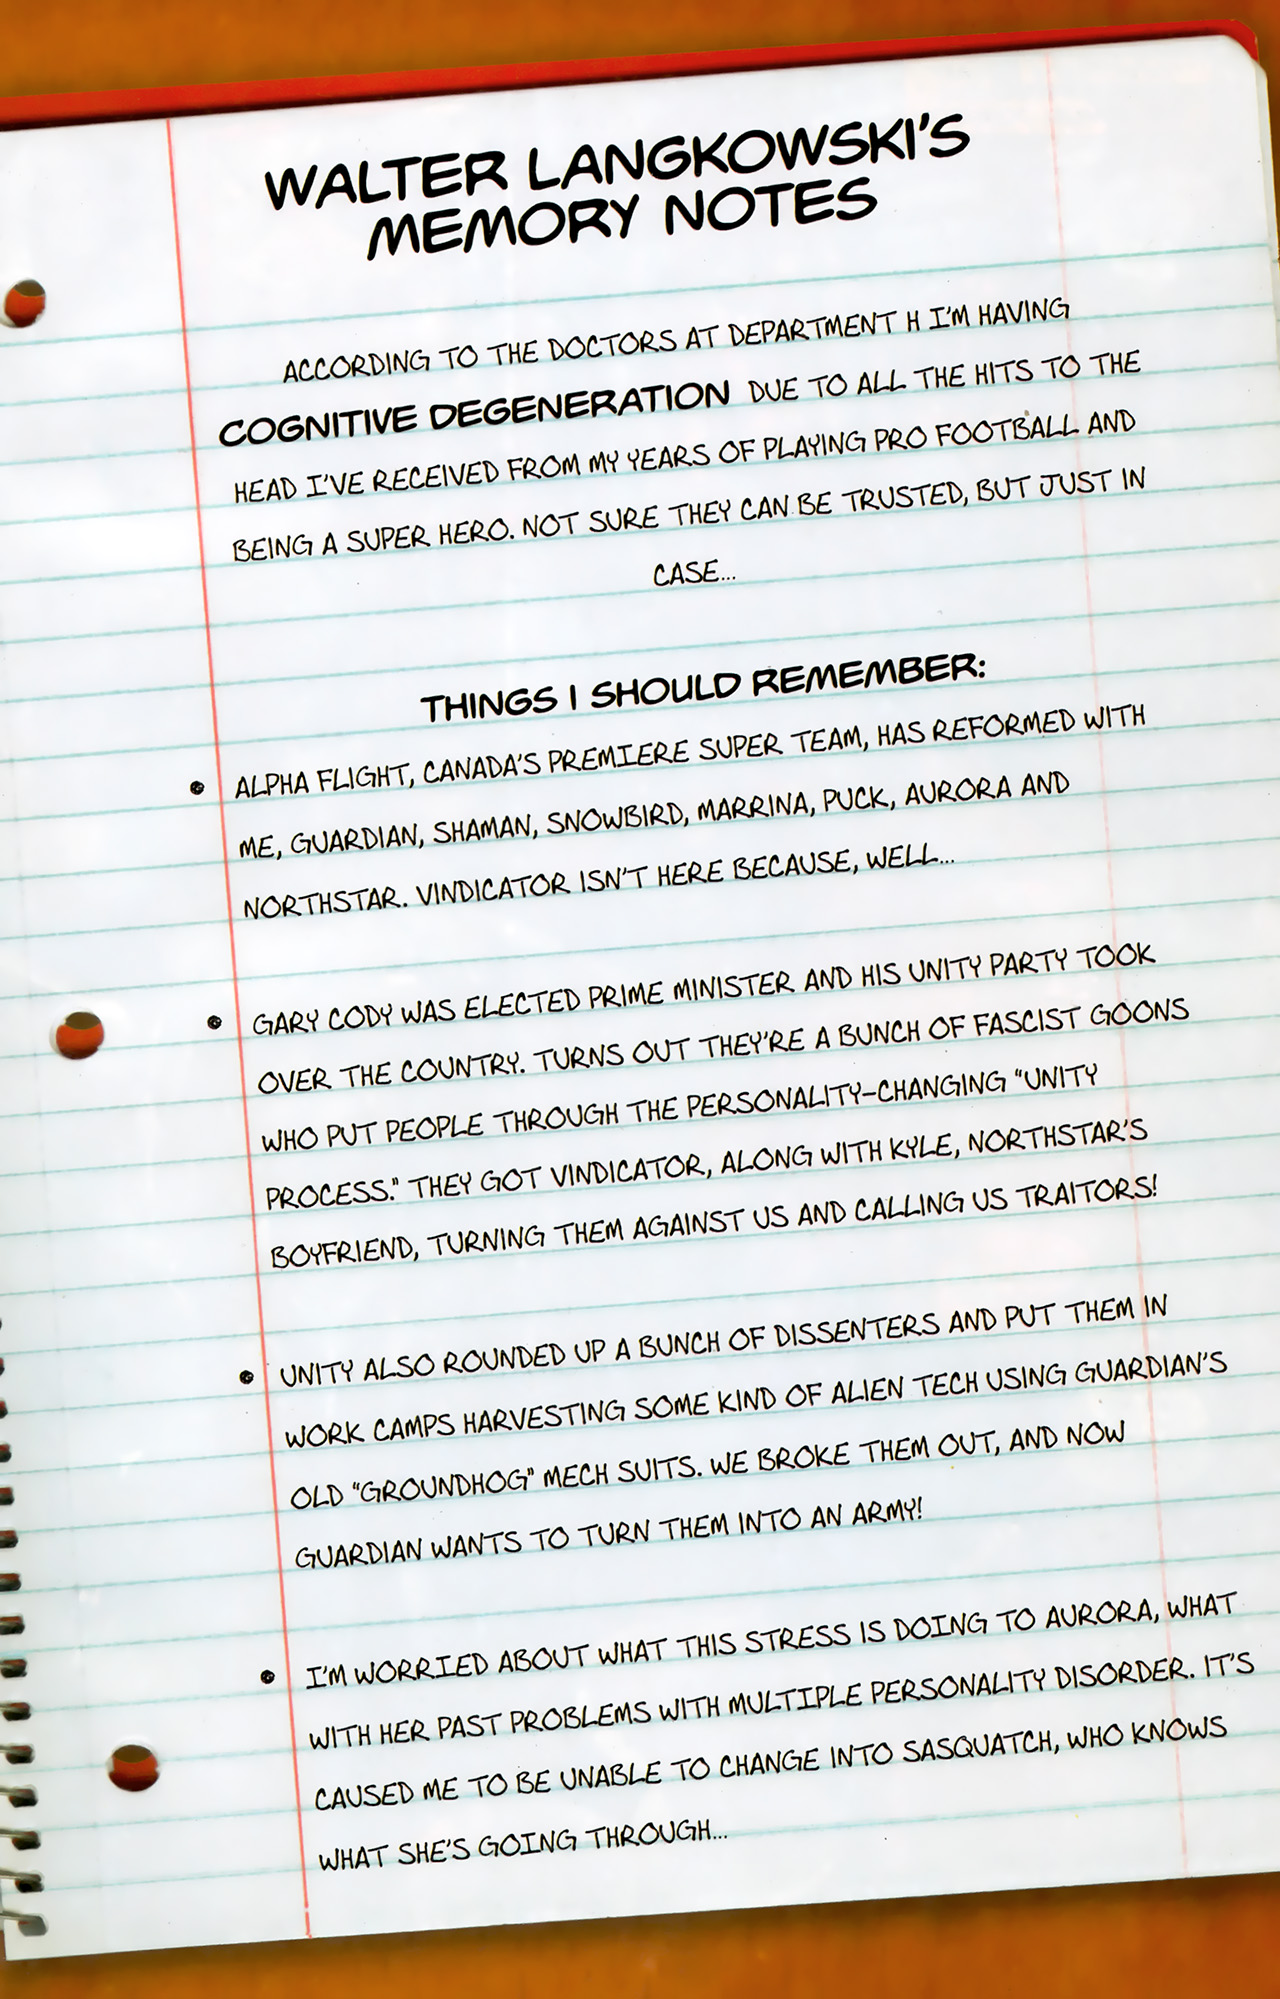 WALTER LANGKOWSKI'S
MEMORY NOTES
ACCORDING TO THE DOCTORS AT DEPARTMENT H I'M HAVING
COGNITIVE DEGENERATION DUE TO ALL THE HITS TO THE
HEAD I'VE RECEIVED FROM MY YEARS OF PLAYING PRO FOOTBALL AND
BEING A SUPER HERO. NOT SURE THEY CAN BE TRUSTED, BUT JUST IN
CASE...
THINGS I SHOULD REMEMBER:
• ALPHA FLIGHT, CANADA'S PREMIERE SUPER TEAM, HAS REFORMED WITH
ME, GUARDIAN, SHAMAN, SNOWBIRD, MARRINA, PUCK, AURORA AND
NORTHSTAR. VINDICATOR ISN'T HERE BECAUSE, WELL...
• GARY CODY WAS ELECTED PRIME MINISTER AND HIS UNITY PARTY TOOK
OVER THE COUNTRY. TURNS OUT THEY'RE A BUNCH OF FASCIST GOONS
WHO PUT PEOPLE THROUGH THE PERSONALITY-CHANGING "UNITY
PROCESS." THEY GOT VINDICATOR, ALONG WITH KYLE, NORTHSTAR'S
BOYFRIEND, TURNING THEM AGAINST US AND CALLING US TRAITORS!
• UNITY ALSO ROUNDED UP A BUNCH OF DISSENTERS AND PUT THEM IN
WORK CAMPS HARVESTING SOME KIND OF ALIEN TECH USING GUARDIAN'S
OLD "GROUNDHOG" MECH SUITS. WE BROKE THEM OUT, AND NOW
GUARDIAN WANTS TO TURN THEM INTO AN ARMY!
• I'M WORRIED ABOUT WHAT THIS STRESS IS DOING TO AURORA, WHAT
WITH HER PAST PROBLEMS WITH MULTIPLE PERSONALITY DISORDER. IT'S
CAUSED ME TO BE UNABLE TO CHANGE INTO SASQUATCH, WHO KNOWS
WHAT SHE'S GOING THROUGH...